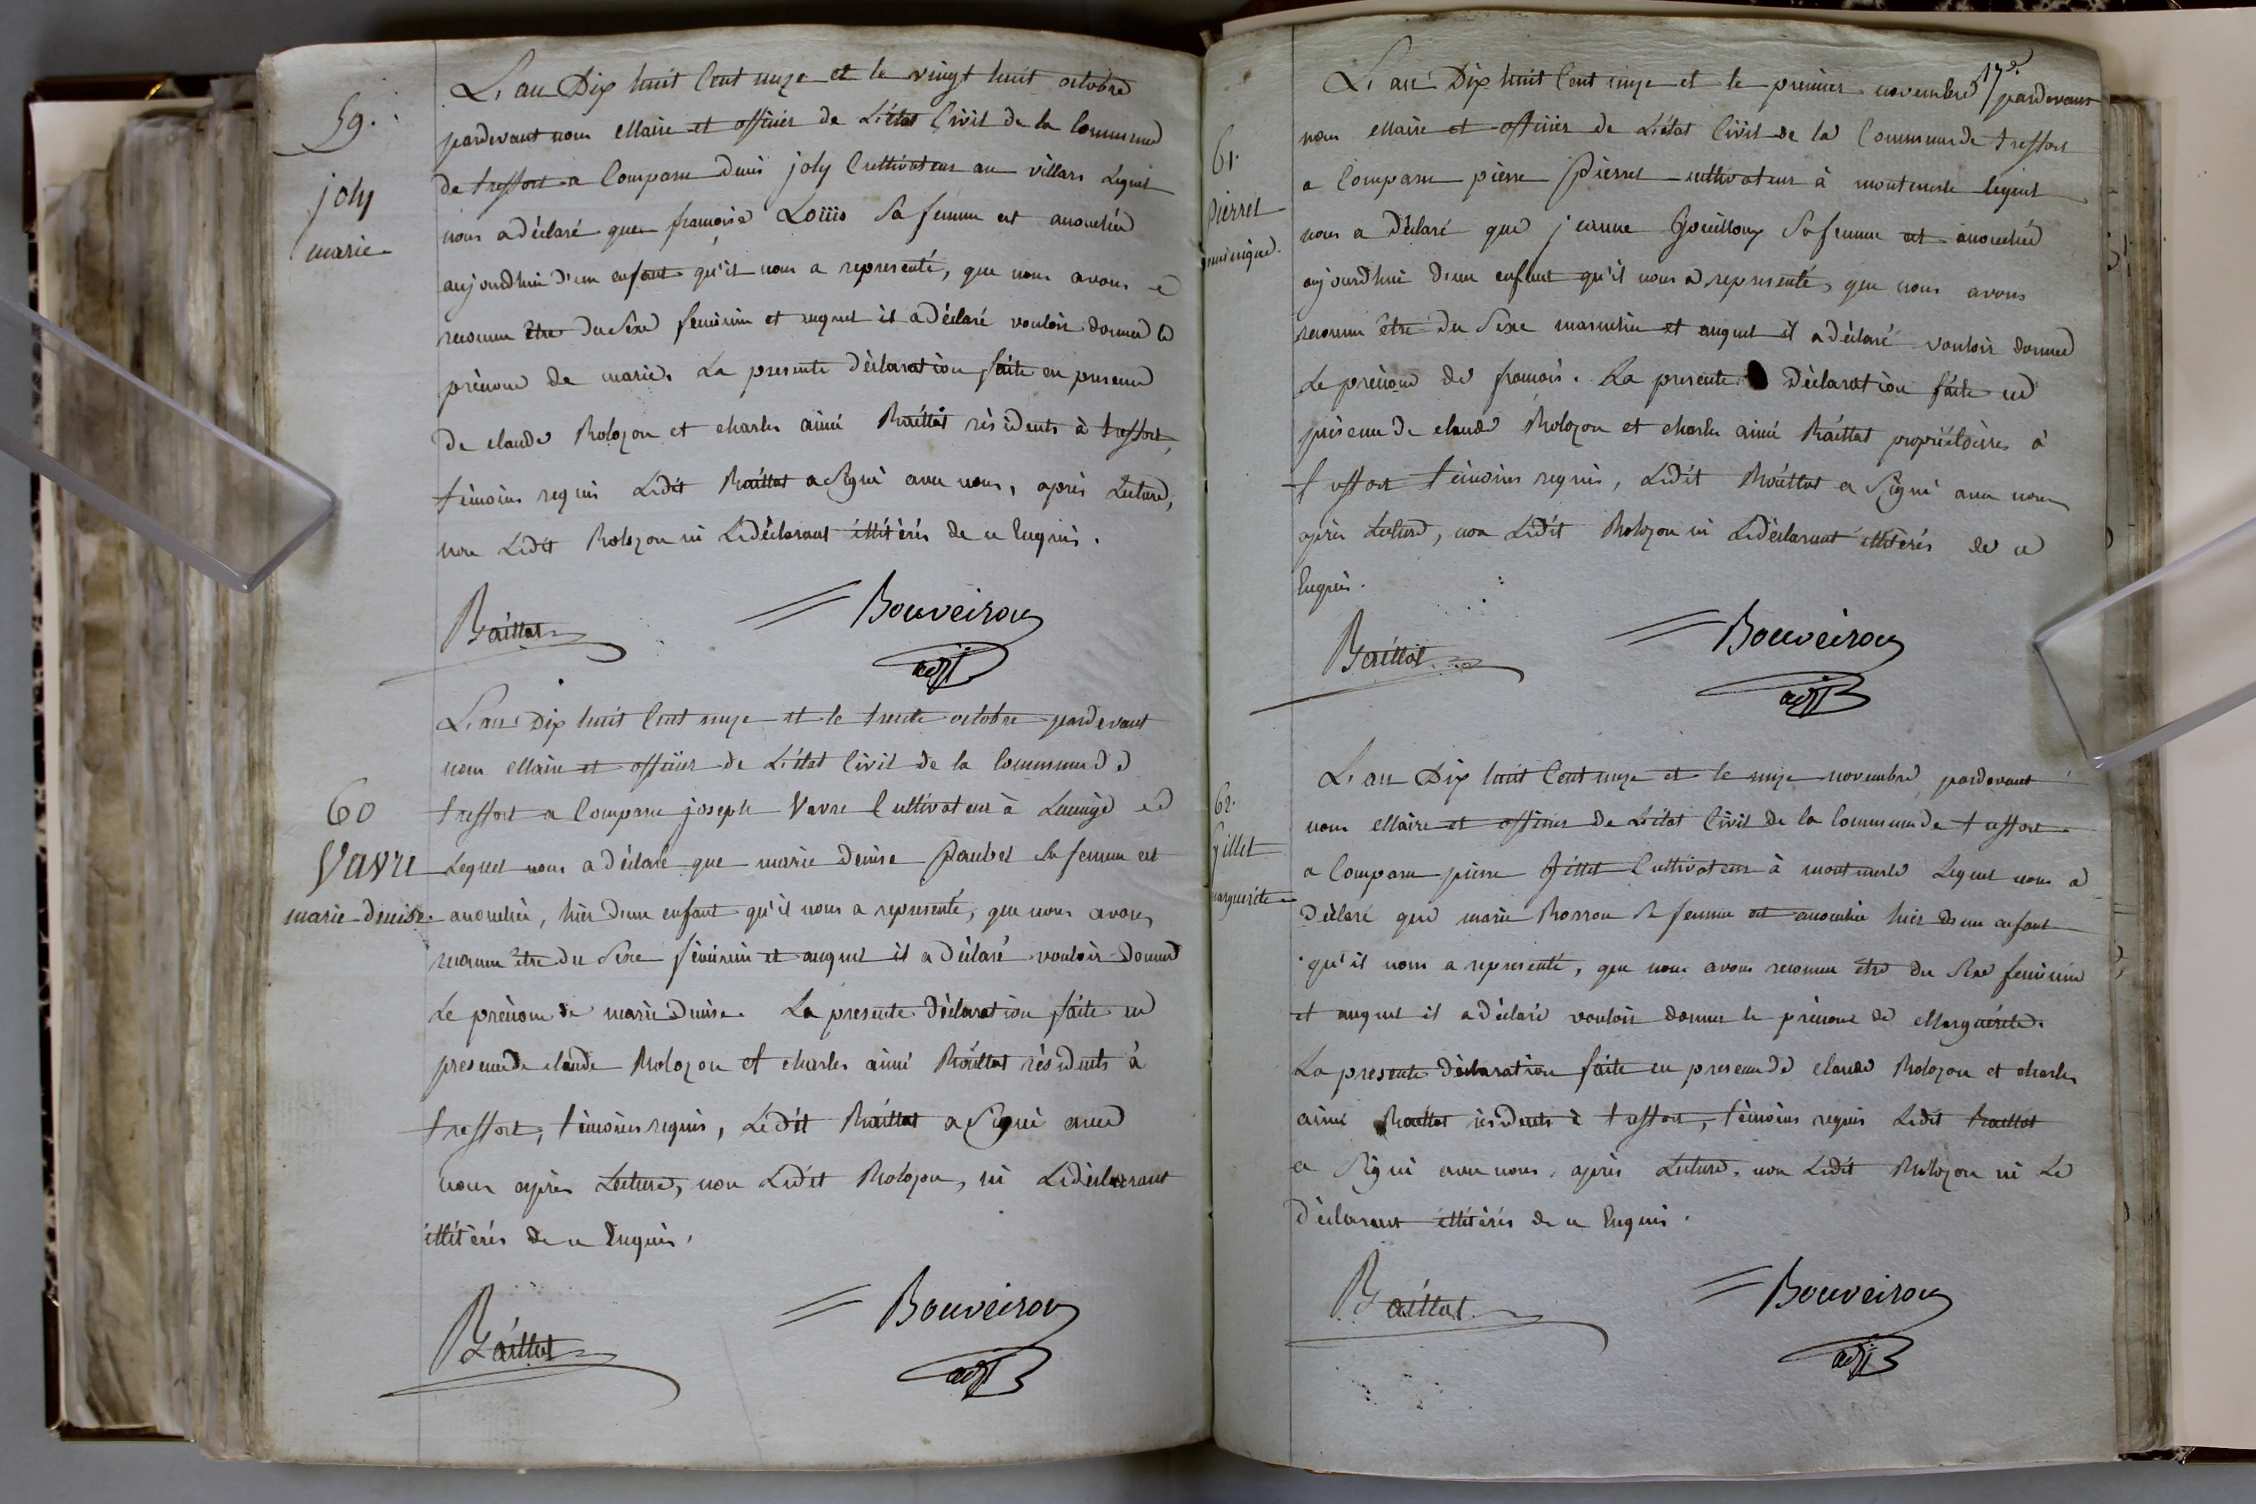 59.
joly
marie
L'an Dix huit Cent onze et le vingt huit octobre
pardevant nous Maire et officier de L'état Civil de la Commune
de treffort a Comparu denis joly Cultivateur au villars Lequel
nous a déclaré que françoise Sa femme est accouchée
aujourdhui d'un enfant qu'il nous a representé, que nous avons
reconnu être du Sexe feminin et auquel il a déclaré vouloir donner le
prénom de marie. La presente déclaration faite en presence
de claude Rolozon et charles aimé Raillat résidents à treffort,
témoins requis Ledit Raillat a Signé avec nous, après Lecture,
non Ledit Rolozon ni Ledéclarant illitérés de ce Enquis.
Raillat
Bouveiron
adjt
60
Vavre
marie denise
L'an Dix huit Cent onze et le trente octobre pardevant
nous Maire et officier de L'état Civil de la Commune de
treffort a Comparu joseph Vavre Cultivateur à
Lequel nous a déclaré que marie denise Paubel Sa femme est
accouchée, hier d'un enfant qu'il nous a representé, que nous avons
reconnu être du Sexe féminin et auquel il a déclaré vouloir donner
Le prénom de marie denise. La presente déclaration faite en
presence de claude Rolozon et charles aimé Raillat résidents à
treffort, témoins requis, Ledit Raillat a Signé avec
nous après Lecture, non Ledit Rolozon, ni Ledéclarant
illitérés de ce Enquis.
Raillat
Bouveiron
adjt
61.
Pierrel
L'an Dix huit Cent onze et le premier novembre pardevant
nous Maire et officier de L'état Civil de la Commune de treffort
a Comparu pierre Pierrel cultivateur à montmerle lequel
nous a Déclaré que jeanne Gouilloux Sa femme est accouchée
aujourdhui d'un enfant qu'il nous a representé, que nous avons
reconnu être du Sexe masculin et auquel il a déclaré vouloir donner
Le prénom de françois. La presente Déclaration faite en
présence de claude Rolozon et charles aimé Raillat propriétaires à
treffort témoins requis, Ledit Raillat a Signé avec nous
après Lecture, non Ledit Rolozon ni Ledéclarant illitérés de ce
Enquis.
Raillat
Bouveiron
adjt
62.
Gillet
marguerite
L'an Dix huit Cent onze et le onze novembre pardevant
nous Maire et officier de L'état Civil de la Commune de treffort
a Comparu pierre Gillet Cultivateur à montmerle Lequel nous a
Déclaré que marie Rosson Sa femme est accouchée hier d'un enfant
qu'il nous a representé, que nous avons reconnu être du Sexe feminin
et auquel il a déclaré vouloir donner le prénom de Marguérite.
La presente déclaration faite en presence de claude Rolozon et charles
aimé Raillat résidents à treffort, témoins requis Ledit Raillat
a Signé avec nous, après Lecture, non Ledit Rolozon ni Le
Déclarant illitérés de ce Enquis.
Raillat
Bouveiron
adjt